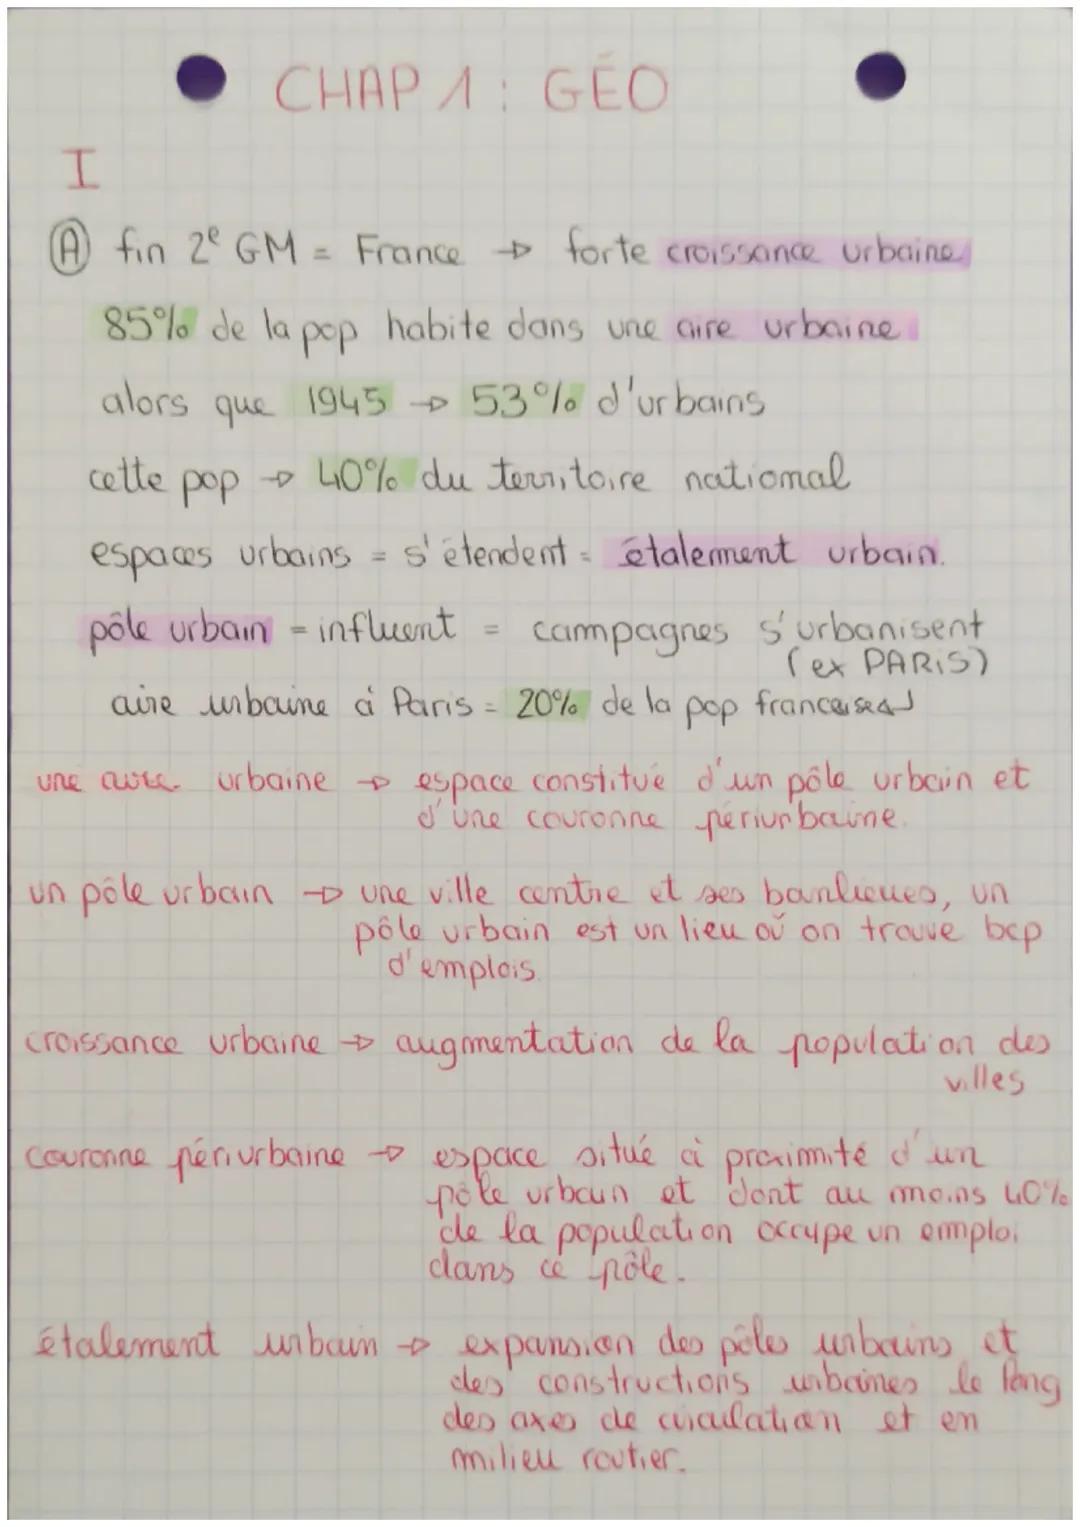 CHAP 1 : GÉO
I
Ⓐ fin 2e GM = France → forte croissance urbaine
85% de la pop habite dans une aire urbaine
alors que 1945 → 53% d'urbains
cette pop → 40% du territoire national
espaces urbains = s'étendent = étalement urbain.
pôle urbain = influent = campagnes s'urbanisent
(ex PARIS)
aire urbaine à Paris = 20% de la pop francaises
une aire urbaine → espace constitué d'un pôle urbain et
d'une couronne périurbaine.
un pôle urbain → une ville centre et ses banlieues, un
pôle urbain est un lieu où on trouve bcp
d'emplois.
croissance urbaine → augmentation de la population des
villes
couronne périurbaine → espace situé à proximité d'un
pôle urbain et dont au moins 40%
de la population occupe un emploi
dans ce pôle.
étalement urbain → expansion des pôles urbains et
des constructions urbaines le long
des axes de circulation et en
milieu routier.